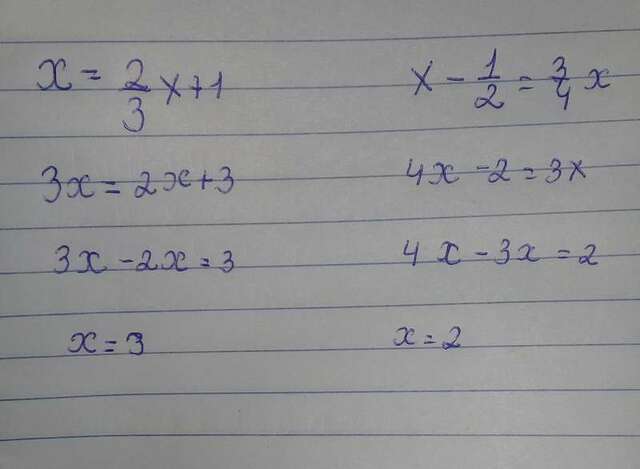 x = 2/3 x + 1
3x = 2x + 3
3x - 2x = 3
x = 3
x - 1/2 = 3/4 x
4x - 2 = 3x
4x - 3x = 2
x = 2